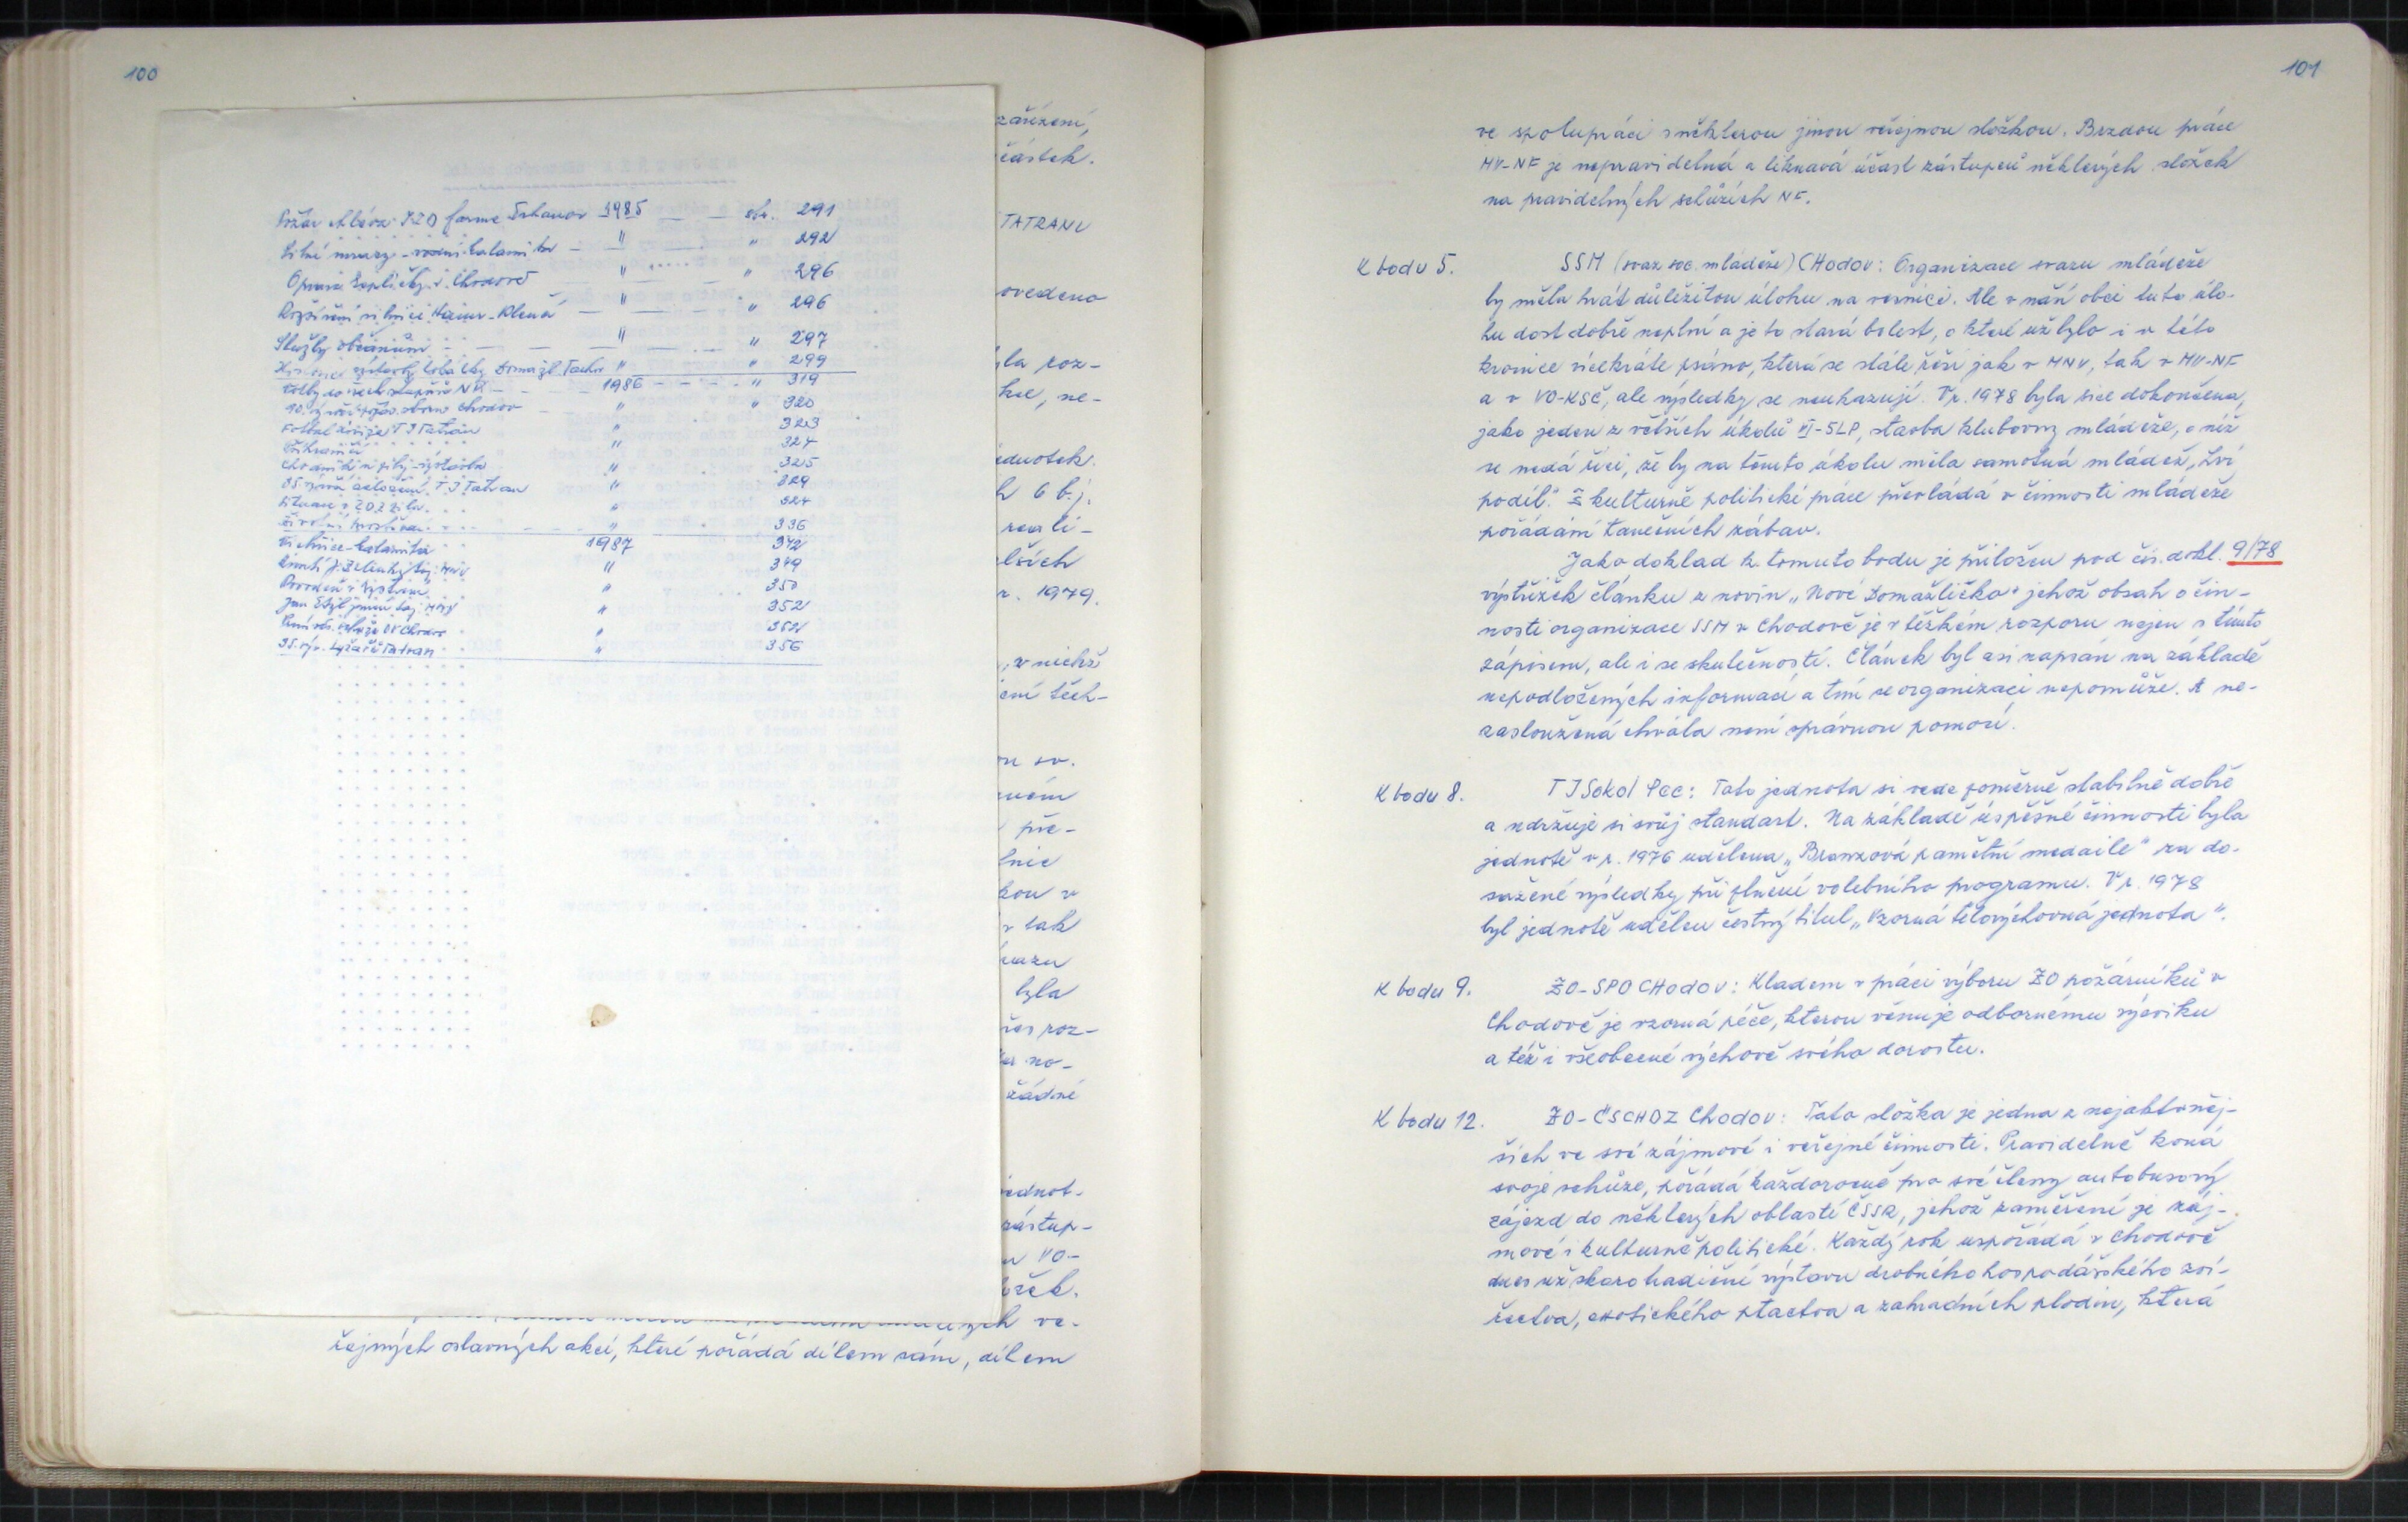 100
zařízení,
částek.
TATRANU
ovedeno
yla roz-
hce, ne-
ednotek.
h 6 b.j.
reali-
lších
r. 1979.
, z nichž
ení těch-
ou sv.
pře-
lnic
kou v
v tak
byla
roz-
no-
žádné
jednot-
zástup-
Požár JZD farma Trhanov 1985 — — str. 291
Silné mrazy - vodní kalamita — " — " 292
Oprava kapličky v Chodově " " 296
Rozšíření silnice Hájovna - Klenčí — " " 296
Služby občanům — " — " 297
" " 299
Volby do všech stupňů NV — 1986 — " 319
10. výročí sboru Chodov — " " 320
Fotbal divize TJ Tatran " 323
" 324
Chodníky " 325
35. výročí založení TJ Tatran " 329
Situace v " 327
Životní prostředí " 336
Vichřice - kalamita 1987 342
Úmrtí J. taj. MNV " 349
Povodeň " 350
Jan taj. MNV " 352
" 352
35. výr. lyžařů Tatran " 356
ve-
řejných oslavných akcí, které pořádá dílem sám, dílem
101
ve spolupráci s některou jinou veřejnou složkou. Brzdou práce
MV-NF je nepravidelná a liknavá účast zástupců některých složek
na pravidelných schůzích NF.
K bodu 5. SSM (svaz soc. mládeže) CHODOV: Organizace svazu mládeže
by měla hrát důležitou úlohu na vesnici. Ale v naší obci tuto úlo-
hu dost dobře neplní a je to stará bolest, o které už bylo i v této
kronice vícekráte psáno, která se stále řeší jak v MNV, tak v MV-NF
a v VO-KSČ, ale výsledky se neukazují. V r. 1978 byla sice dokončena,
jako jeden z větších úkolů VI-5LP, stavba klubovny mládeže, o níž
se nedá říci, že by na tomto úkolu měla samotná mládež „lví
podíl". Z kulturně politické práce převládá v činnosti mládeže
pořádání tanečních zábav.
Jako doklad k tomuto bodu je přiložen pod čís. dokl. 9/78
výstřižek článku z novin „Nové Domažlicko" jehož obsah o čin-
nosti organizace SSM v Chodově je v těžkém rozporu nejen s tímto
zápisem, ale i se skutečností. Článek byl asi napsán na základě
nepodložených informací a tím se organizaci nepomůže. A ne-
zasloužená chvála není správnou pomocí.
K bodu 8. TJ Sokol Pec: Tato jednota si vede poměrně stabilně dobře
a udržuje si svůj standart. Na základě úspěšné činnosti byla
jednotě v r. 1976 udělena „Bronzová pamětní medaile" za do-
sažené výsledky při plnění volebního programu. V r. 1978
byl jednotě udělen čestný titul „Vzorná tělovýchovná jednota".
K bodu 9. ZO-SPO CHODOV: Kladem v práci výboru ZO požárníků v
Chodově je vzorná péče, kterou věnuje odbornému výcviku
a též i všeobecné výchově svého dorostu.
K bodu 12. ZO-ČSCHDZ Chodov: Tato složka je jedna z nejaktivněj-
ších ve své zájmové i veřejné činnosti. Pravidelně koná
svoje schůze, pořádá každoročně pro své členy autobusový
zájezd do některých oblastí ČSSR, jehož zaměření je záj-
mové i kulturně politické. Každý rok uspořádá v Chodově
dnes už skoro tradiční výstavu drobného hospodářského zví-
řectva, exotického ptactva a zahradních plodin, která